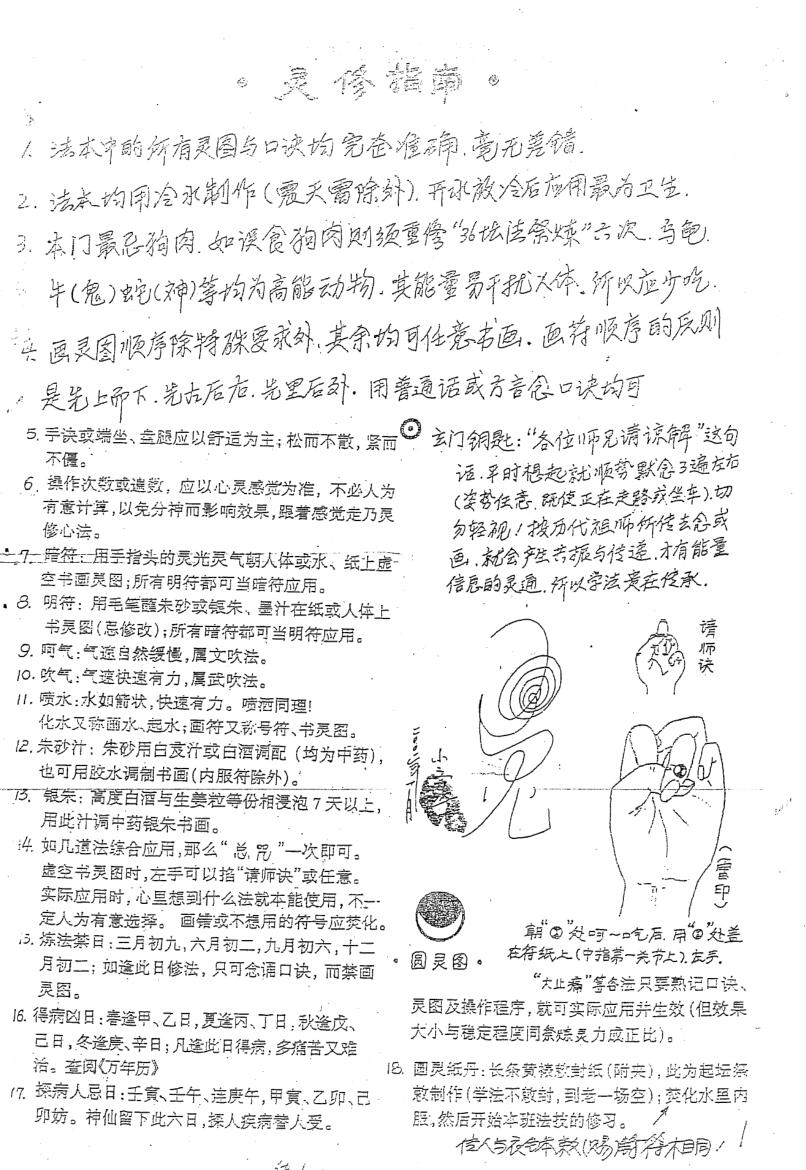 ·灵修指南·
1. 法本中的所有灵图与口诀均完整准确.毫无差错.
2. 法本均用冷水制作(震天雷除外).开水放冷后应用最为卫生.
3. 本门最忌狗肉.如误食狗肉则须重修“36坛法祭炼”六次.乌龟.
牛(鬼)蛇(神)等均为高能动物.其能量易干扰人体.所以应少吃.
画灵图顺序除特殊要求外.其余均可任意书画.画符顺序的原则
是先上而下.先左后右.先里后外.用普通话或方言念口诀均可
5. 手诀或端坐、盘腿应以舒适为主；松而不散，紧而
不僵。
6. 操作次数或遍数，应以心灵感觉为准，不必人为
有意计算，以免分神而影响效果，跟着感觉走乃灵
修心法。
7. 暗符：用手指头的灵光灵气朝人体或水、纸上虚
空书画灵图；所有明符都可当暗符应用。
8. 明符：用毛笔蘸朱砂或银朱、墨汁在纸或人体上
书灵图(忌修改)；所有暗符都可当明符应用。
9. 呵气：气速自然缓慢，属文吹法。
10. 吹气：气速快速有力，属武吹法。
11. 喷水：水如箭状，快速有力。喷洒同理!
化水又称画水、起水；画符又称号符、书灵图。
12. 朱砂汁：朱砂用白芨汁或白酒调配（均为中药），
也可用胶水调制书画(内服符除外)。
13. 银朱：高度白酒与生姜粒等份相浸泡7天以上，
用此汁调中药银朱书画。
14. 如几道法综合应用，那么“总咒”一次即可。
虚空书灵图时，左手可以掐“请师诀”或任意。
实际应用时，心里想到什么法就本能使用，不一
定人为有意选择。画错或不想用的符号应焚化。
15. 炼法禁日：三月初九，六月初二，九月初六，十二
月初二；如逢此日修法，只可念诵口诀，而禁画
灵图。
16. 得病凶日：春逢甲、乙日，夏逢丙、丁日，秋逢戊、
己日，冬逢庚、辛日；凡逢此日得病，多痛苦又难
治。查阅《万年历》
17. 探病人忌日：壬寅、壬午、连庚午，甲寅、乙卯、己
卯妨。神仙留下此六日，探人疾病替人受。
玄门钥匙：“各位师兄请谅解”这句
话.平时想起就顺势默念3遍左右
(姿势任意.既使正在走路或坐车).切
勿轻视！按历代祖师所传去念或
画.就会产生共振与传递.才有能量
信息的灵通.所以学法贵在传承.
请师诀
(雷印)
朝“②”处呵一口气后.用“②”处盖
在符纸上(中指第一关节上).左手.
·圆灵图·
“大止痛”等各法只要熟记口诀、
灵图及操作程序，就可实际应用并生效(但效果
大小与稳定程度同祭炼灵力成正比)。
18. 圆灵纸丹：长条黄裱敕封纸(附夹)，此为起坛祭
敕制作(学法不敕封，到老一场空)；焚化水里内
服，然后开始本班法技的修习。
1